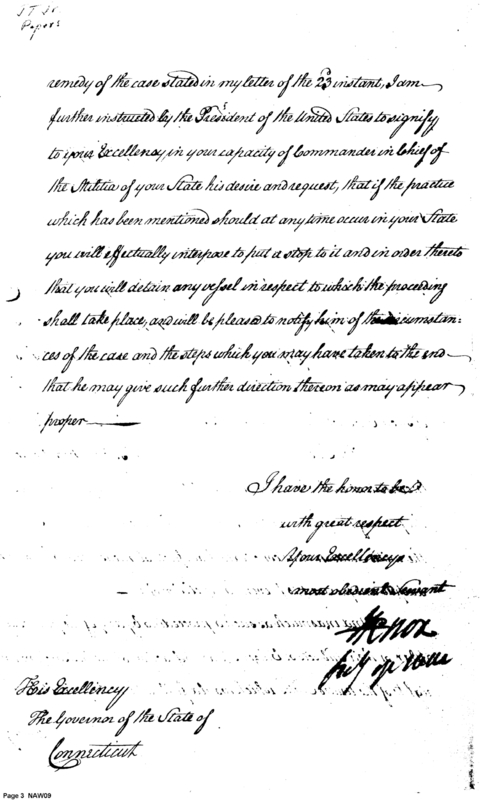 J T Jr
Papers
remedy of the case stated in my letter of the 23d instant, I am
further instructed by the President of the United States to signify
to your Excellency, in your capacity of Commander in Chief of
the Militia of your State his desire and request, that if the practice
which has been mentioned should at any time occur in your State
you will effectually interpose to put a stop to it and in order thereto
that you will detain any vessel in respect to which the proceeding
shall take place, and will be pleased to notify him of the circumstan=
ces of the case and the steps which you may have taken to the end
that he may give such further direction thereon as may appear
proper
I have the honor to be
with great respect
Your Excellency's
most obedient Servant
HKnox
Secy of War
His Excellency
The Governor of the State of
Connecticut
Page 3 NAW09